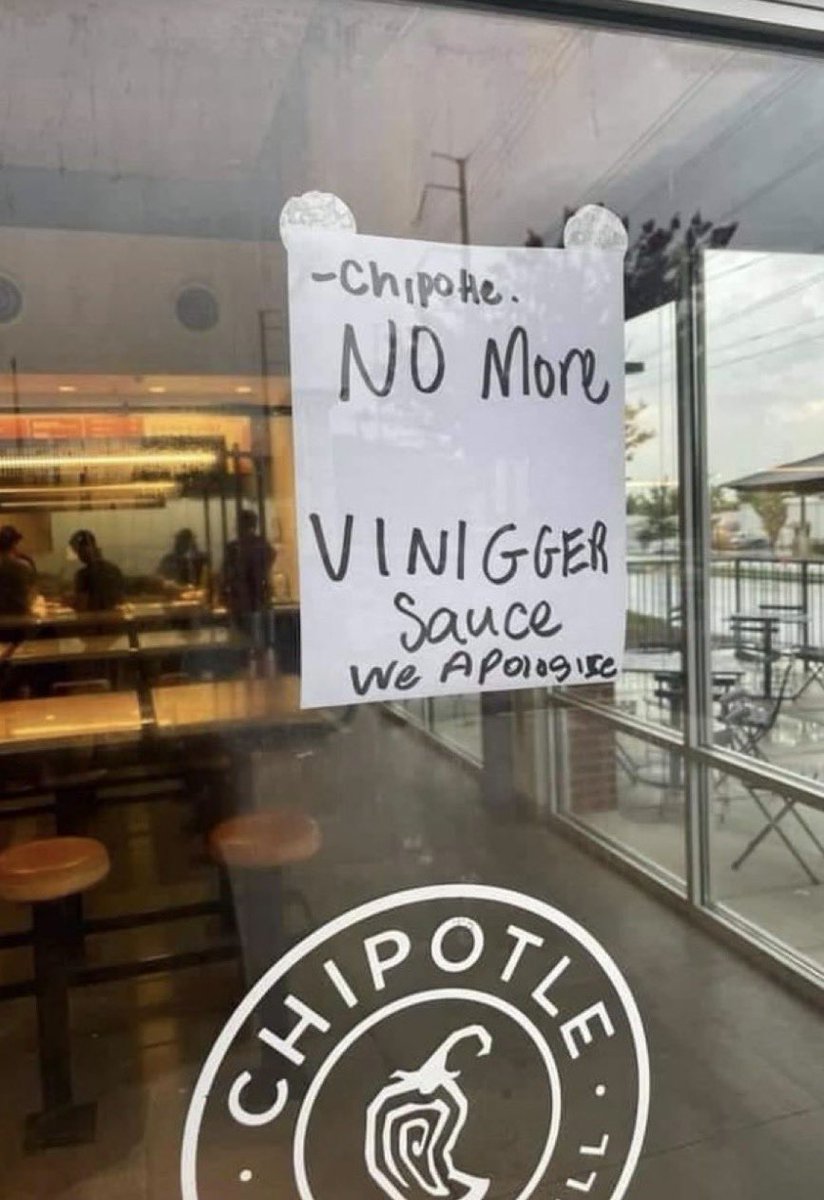 -Chipotle.
NO More
VINIGGER
Sauce
We APologize
CHIPOTLE